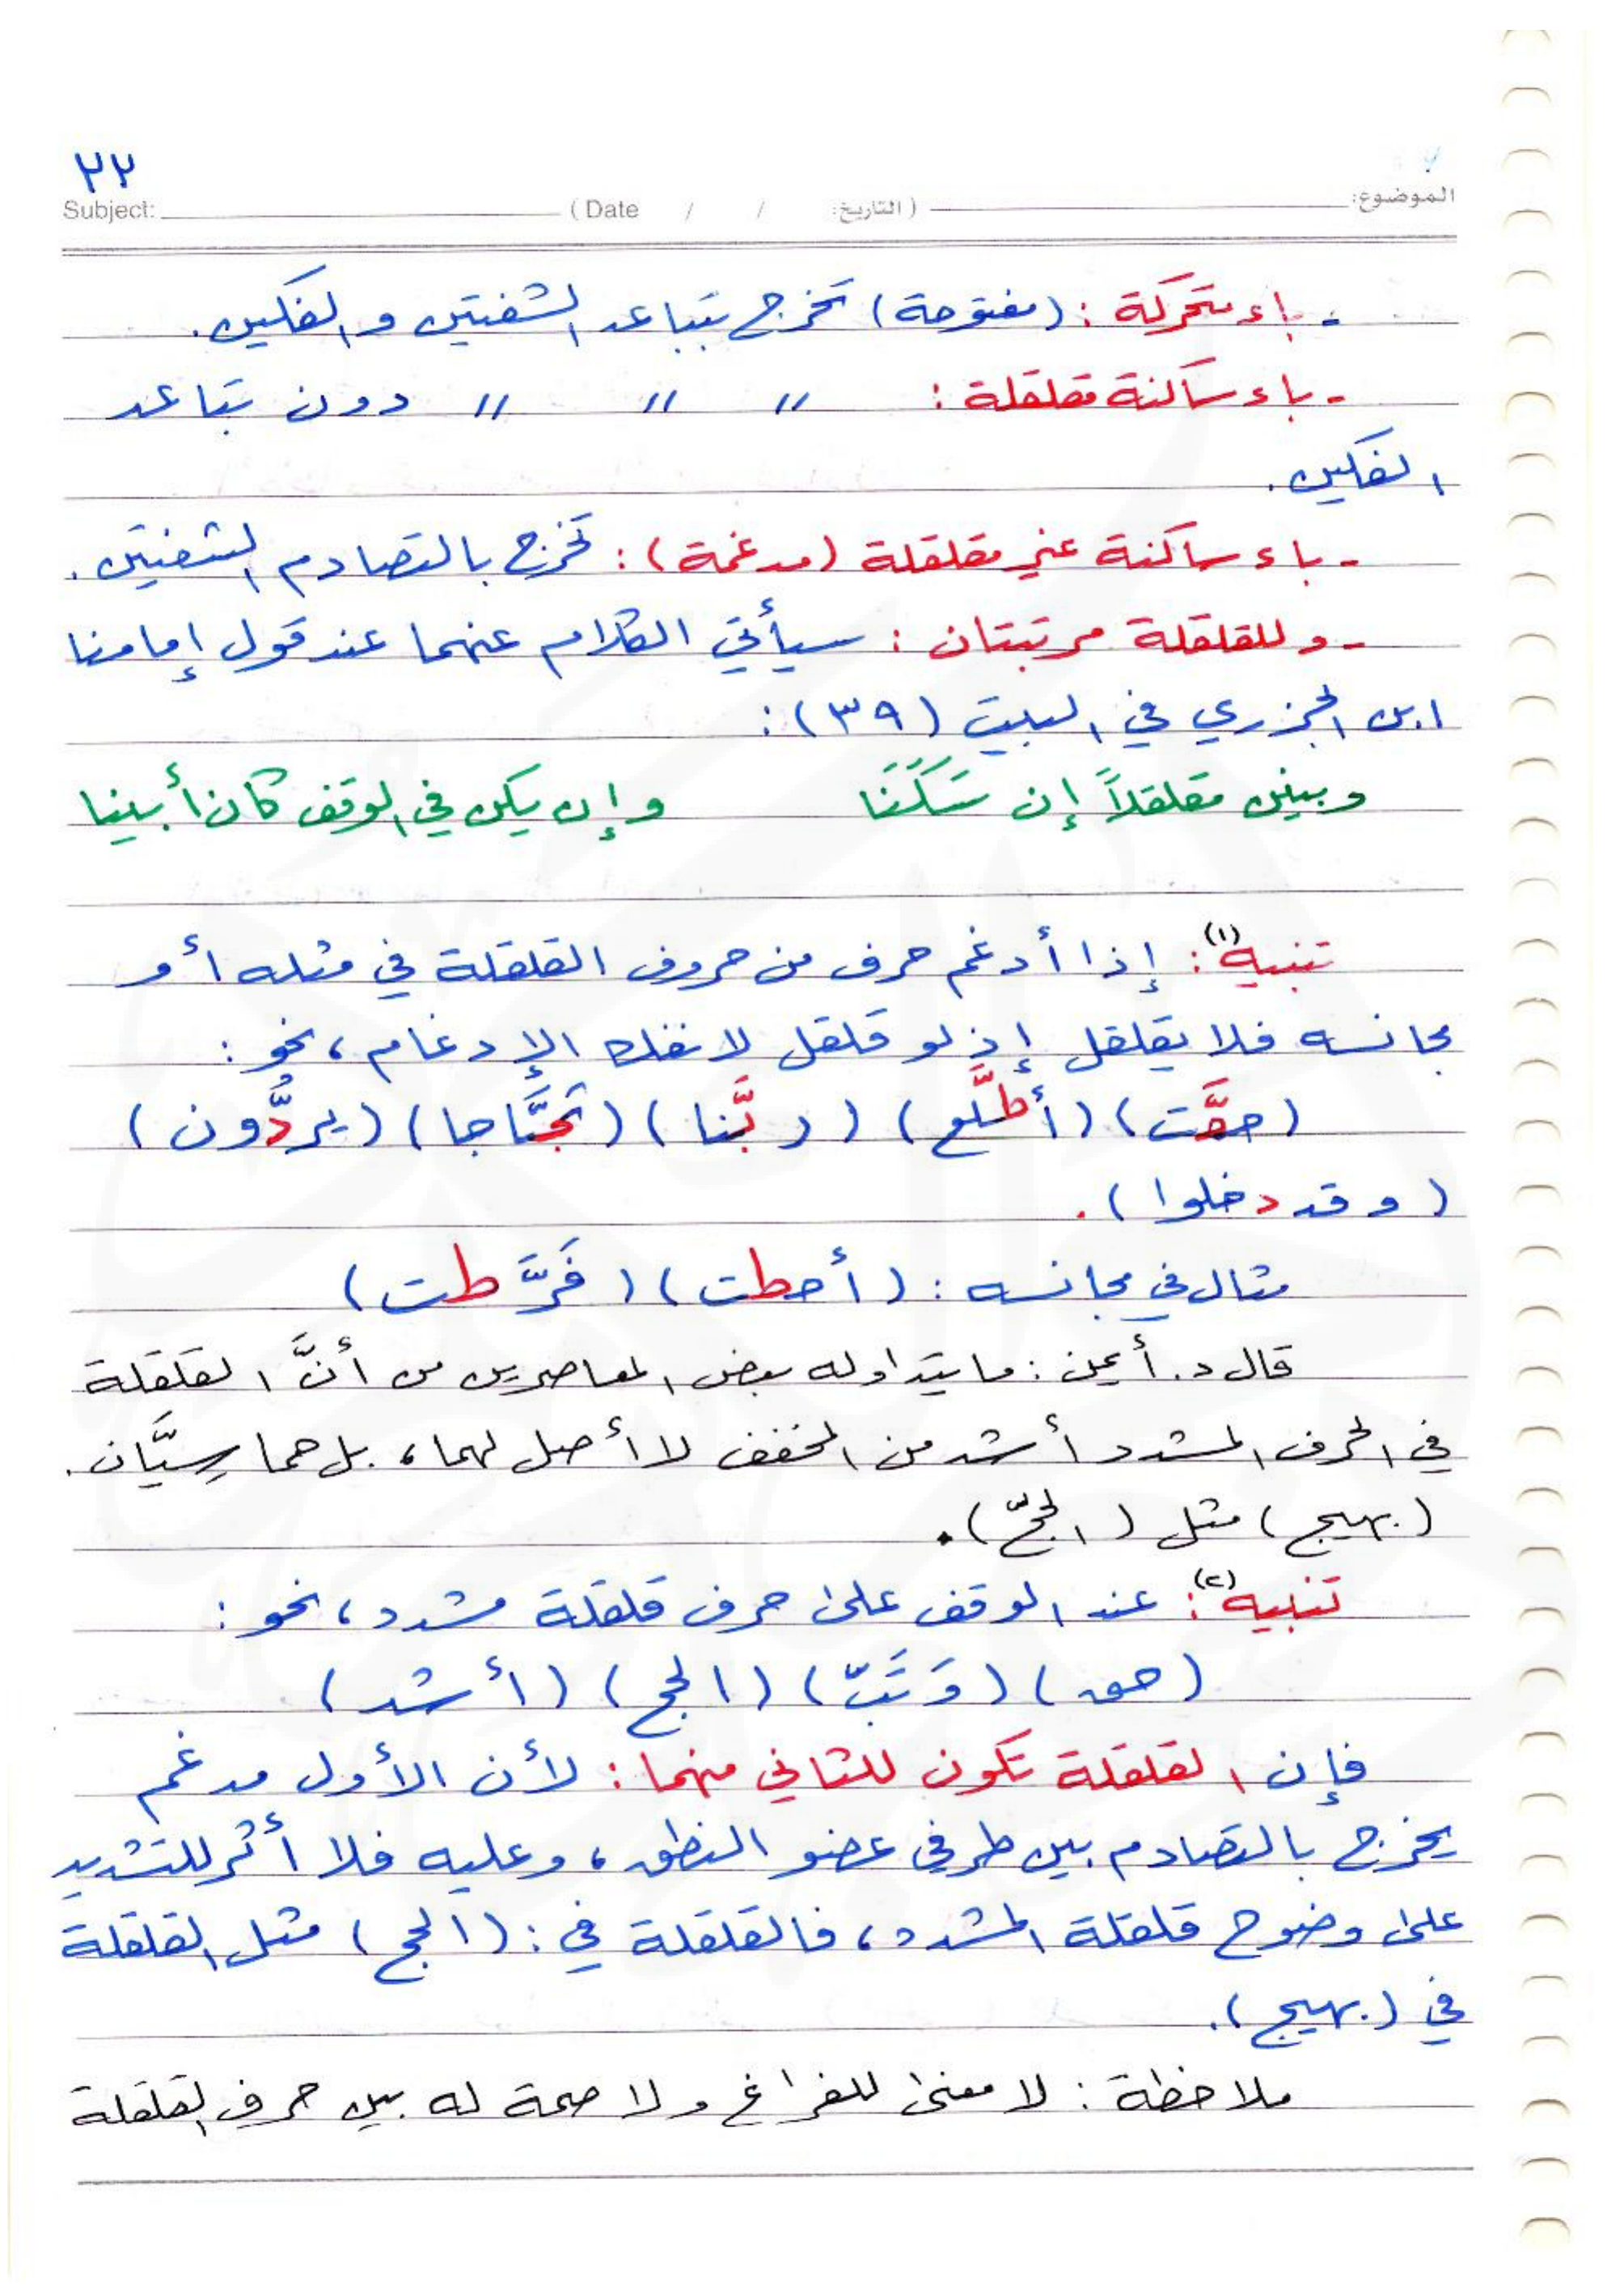 ٢٢
الموضوع:
(التاريخ: / / Date)
Subject:
- باء متحركة: (مفتوحة) تخرج بتباعد الشفتين والفكين.
- باء ساكنة مقلقلة: // // // دون تباعد
الفكين.
- باء ساكنة غير مقلقلة (مدغمة): تخرج بالتصادم الشفتين.
- وللقلقلة مرتبتان: سيأتي الكلام عنهما عند قول إمامنا
ابن الجزري في البيت (٣٩):
وبينن مقلقلاً إن سَكَنَا وإن يكن في الوقف كان أبينا
تنبيه(١): إذا أدغم حرف من حروف القلقلة في مثله أو
مجانسه فلا يقلقل إذ لو قلقل لانفك الإدغام، نحو:
(حقَّت) (أطَّلع) (ربَّنا) (ثجَّاجا) (يردُّون)
(وقد دخلوا).
مثال في مجانسه: (أحطت) (فَرَّطت)
قال د. أيمن: ما يتداوله بعض المعاصرين من أنَّ القلقلة
في الحرف المشدد أشد من المخفف لا أصل لهما، بل هما سِيَّان.
(بهيج) مثل (الحجّ).
تنبيه(٢): عند الوقف على حرف قلقلة مشدد، نحو:
(حق) (وَتَبّ) (الحج) (أشد)
فإن القلقلة تكون للثاني منهما: لأن الأول مدغم
يخرج بالتصادم بين طرفي عضو النطق، وعليه فلا أثر للتشديد
على وضوح قلقلة المشدد، فالقلقلة في: (الحج) مثل القلقلة
في (بهيج).
ملاحظة: لا معنى للفراغ ولا صحة له بين حرف القلقلة